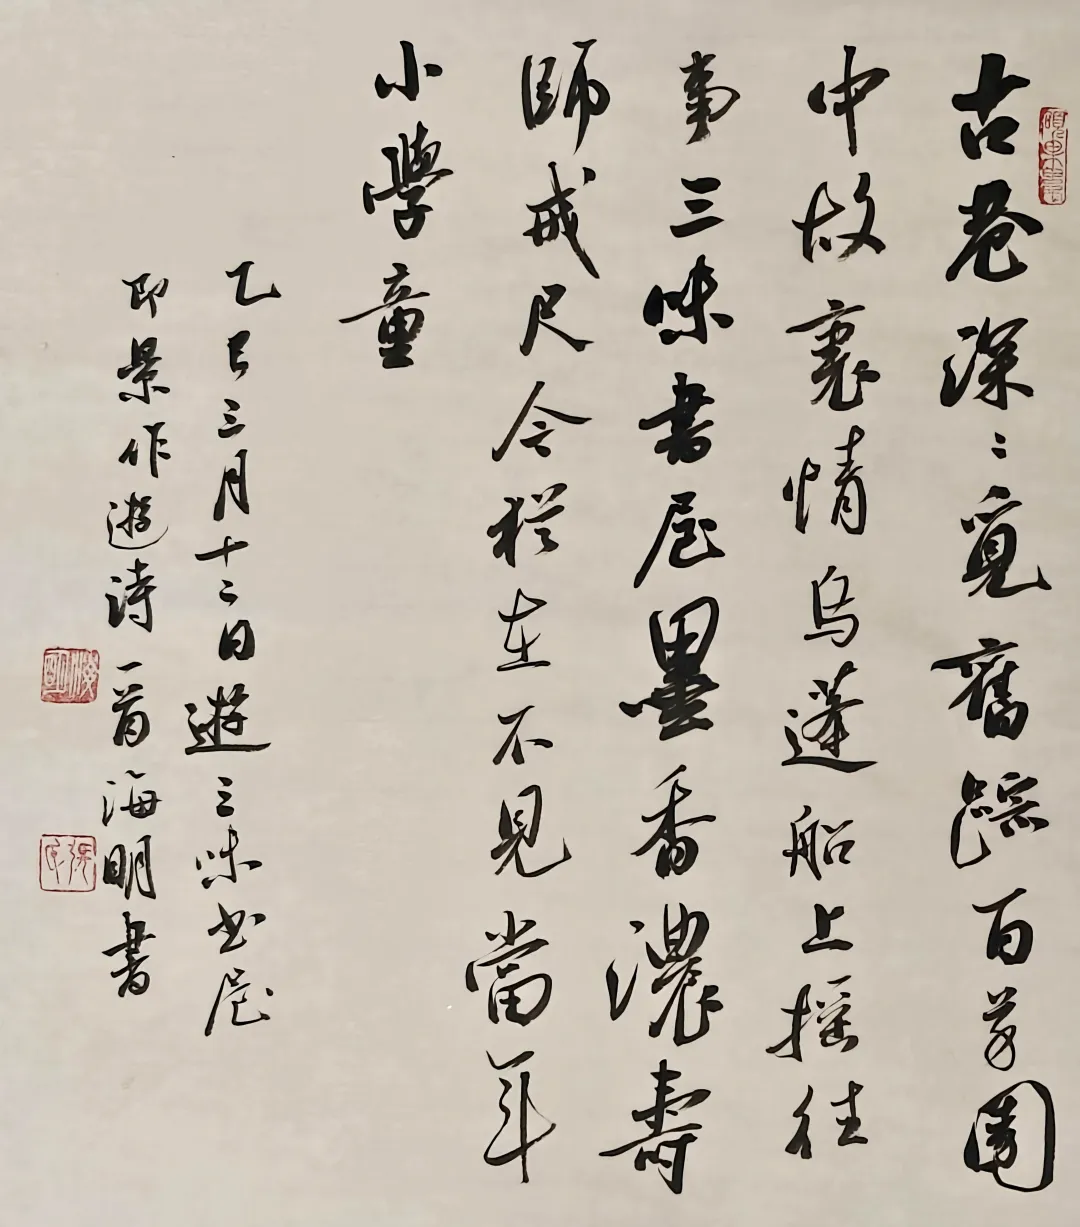 古巷深〻覓舊踪百草園
中故裏情烏蓬船上摇往
事三味書屋墨香濃壽
師戒尺今猶在不見當年
小學童
乙巳三月十二日遊三味书屋
即景作遊詩一首海明書